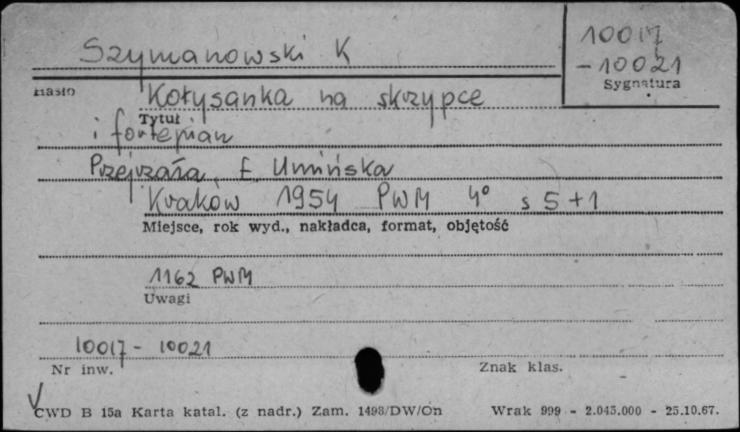 Szymanowski K
10017
-10021
Sygnatura
Hasło
Kołysanka na skrzypce
Tytuł
i fortepian
Przejrzała E Umińska
Kraków 1954 PWM 4° s 5+1
Miejsce, rok wyd., nakładca, format, objętość
1162 PWM
Uwagi
10017-10021
Nr inw.
Znak klas.
CWD B 15a Karta katal. (z nadr.) Zam. 1498/DW/On Wrak 999 - 2.045.000 - 25.10.67.